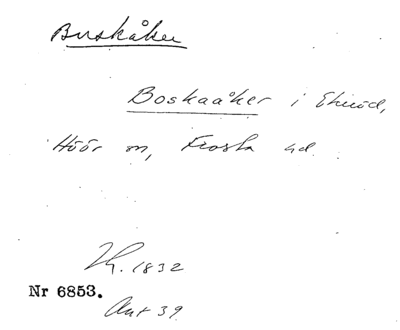 Buskåker
Boskaåker i Ekeröd,
Höör sn, Frosta hd.
1832
Nr 6853.
Avt 39